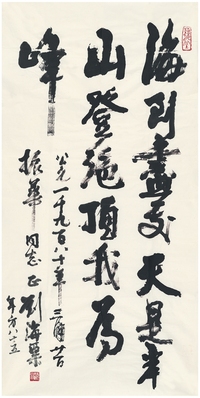 海到盡處天是岸
山登絕頂我為
峰
公元一千九百八十年三月廿日
振華同志正 劉海粟
年方八十五